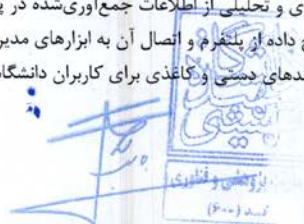 ی و تحلیلی از اطلاعات جمع‌آوری‌شده در پ
ح داده از پلتفرم و اتصال آن به ابزارهای مدیر
دهای دستی و کاغذی برای کاربران دانشگا
پژوهشی و فناوری